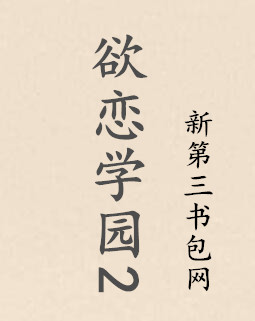 欲恋学园2
新第三书包网